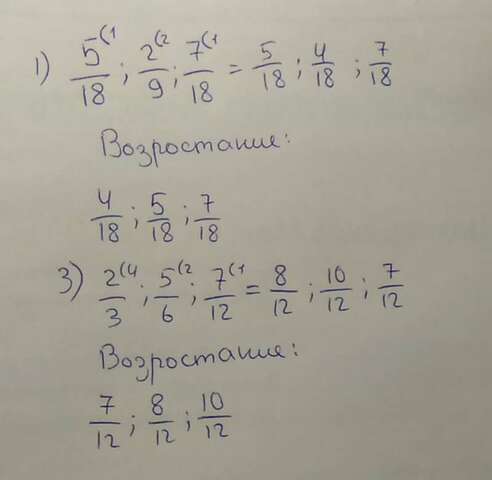 1) 5⁽¹/18 ; 2⁽²/9 ; 7⁽¹/18 = 5/18 ; 4/18 ; 7/18
Возростание:
4/18 ; 5/18 ; 7/18
3) 2⁽⁴/3 ; 5⁽²/6 ; 7⁽¹/12 = 8/12 ; 10/12 ; 7/12
Возростание:
7/12 ; 8/12 ; 10/12